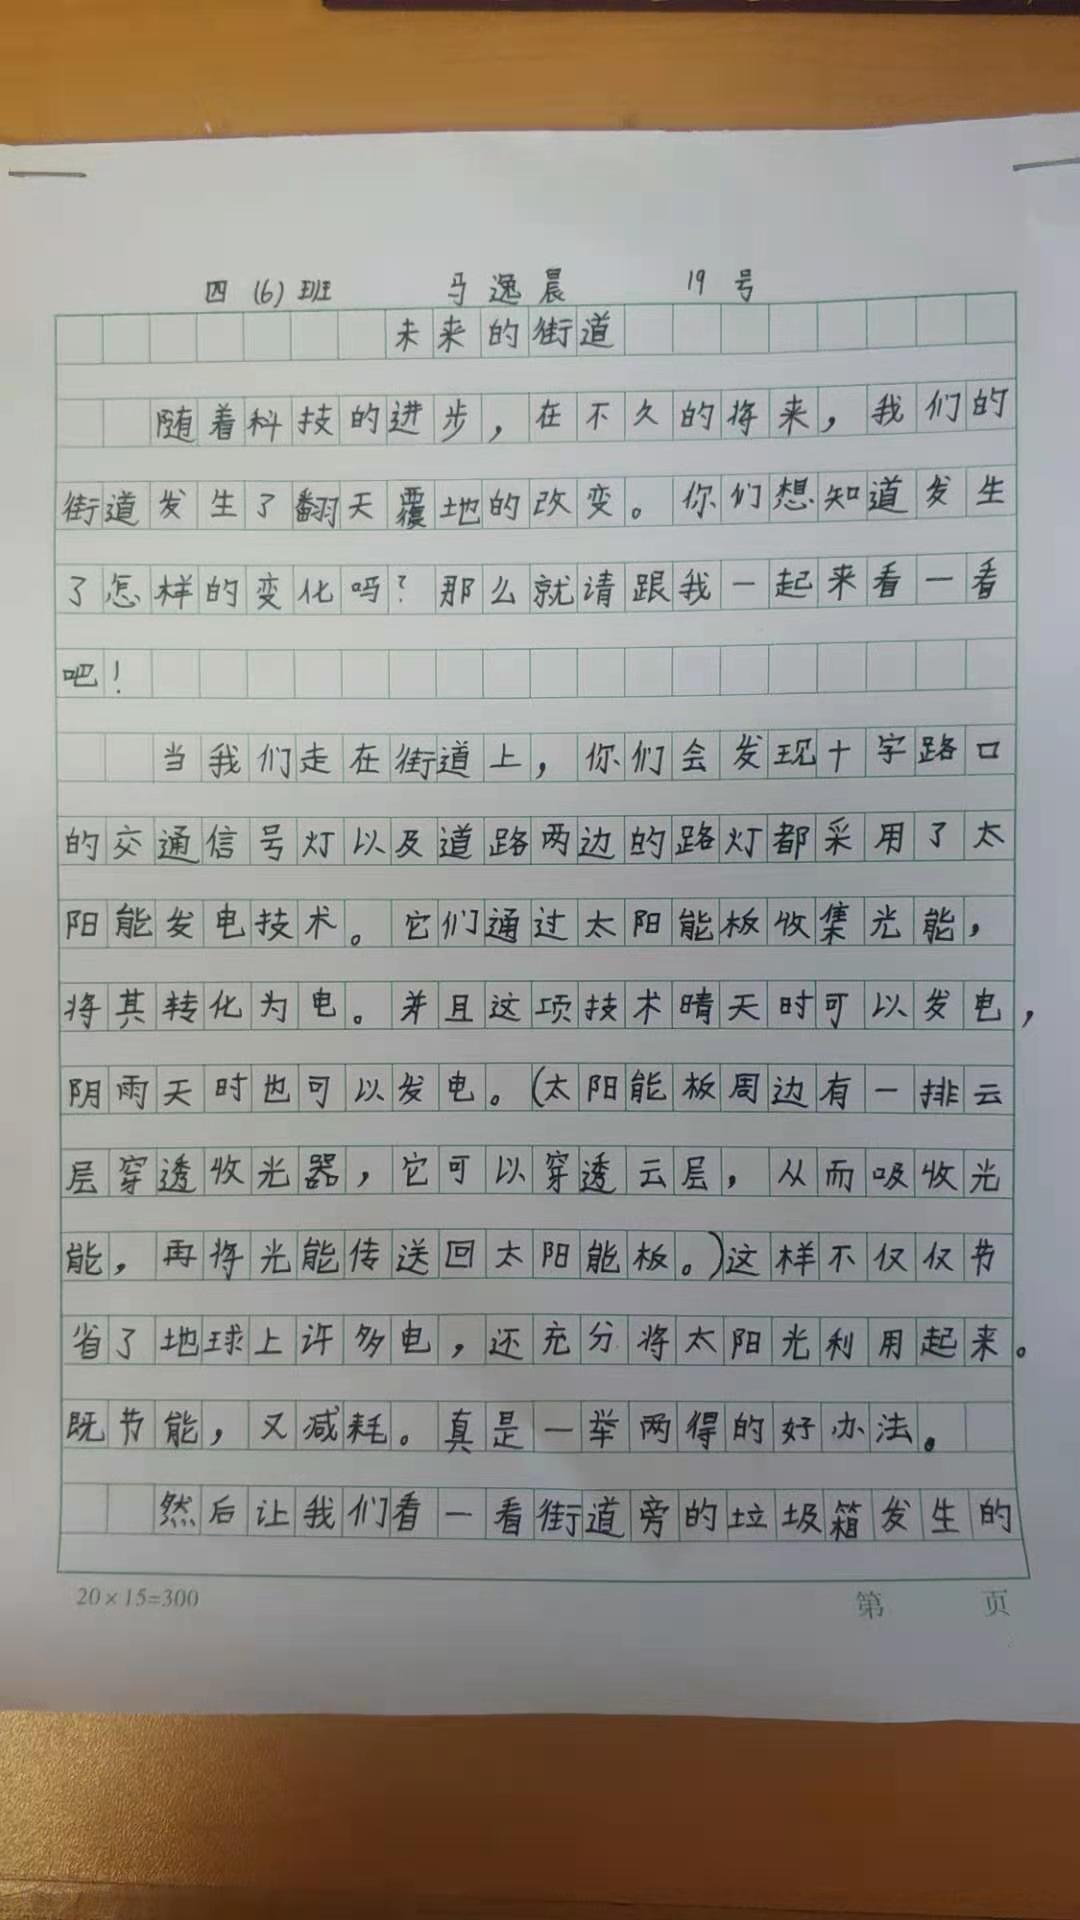 四(6)班 马逸晨 19号
未来的街道
随着科技的进步，在不久的将来，我们的
街道发生了翻天覆地的改变。你们想知道发生
了怎样的变化吗？那么就请跟我一起来看一看
吧！
当我们走在街道上，你们会发现十字路口
的交通信号灯以及道路两边的路灯都采用了太
阳能发电技术。它们通过太阳能板收集光能，
将其转化为电。并且这项技术晴天时可以发电，
阴雨天时也可以发电。（太阳能板周边有一排云
层穿透收光器，它可以穿透云层，从而吸收光
能，再将光能传送回太阳能板。）这样不仅仅节
省了地球上许多电，还充分将太阳光利用起来。
既节能，又减耗。真是一举两得的好办法。
然后让我们看一看街道旁的垃圾箱发生的
20×15=300 第 页